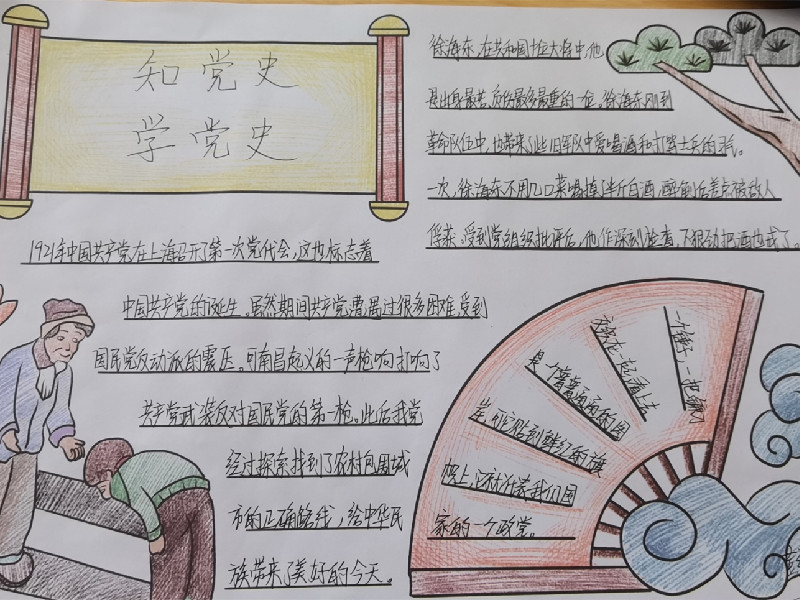 知党史
学党史
徐海东,在共和国十位大将中,他
是出身最苦、负伤最多最重的一位。徐海东刚到
革命队伍中,也带来了些旧军队中爱喝酒和打骂士兵的习气。
一次,徐海东不用几口菜喝掉半斤白酒,醉前后差点被敌人
俘获。受到党组织批评后,他作深刻检查,下狠劲把酒也戒了。
1921年中国共产党在上海召开了第一次党代会,这也标志着
中国共产党的诞生。虽然期间共产党遭遇过很多困难,受到
国民党反动派的震压。可南昌起义的一声枪响打响了
共产党武装反对国民党的第一枪。此后我党
经过探索找到了农村包围城
市的正确路线,给中华民
族带来了美好的今天。
一个锤子,一把镰刀
交叉在一起,看上去
是一个普普通通的图
案,班驳到鲜红的旗
帜上,还就代表我们国
家的一个政党。